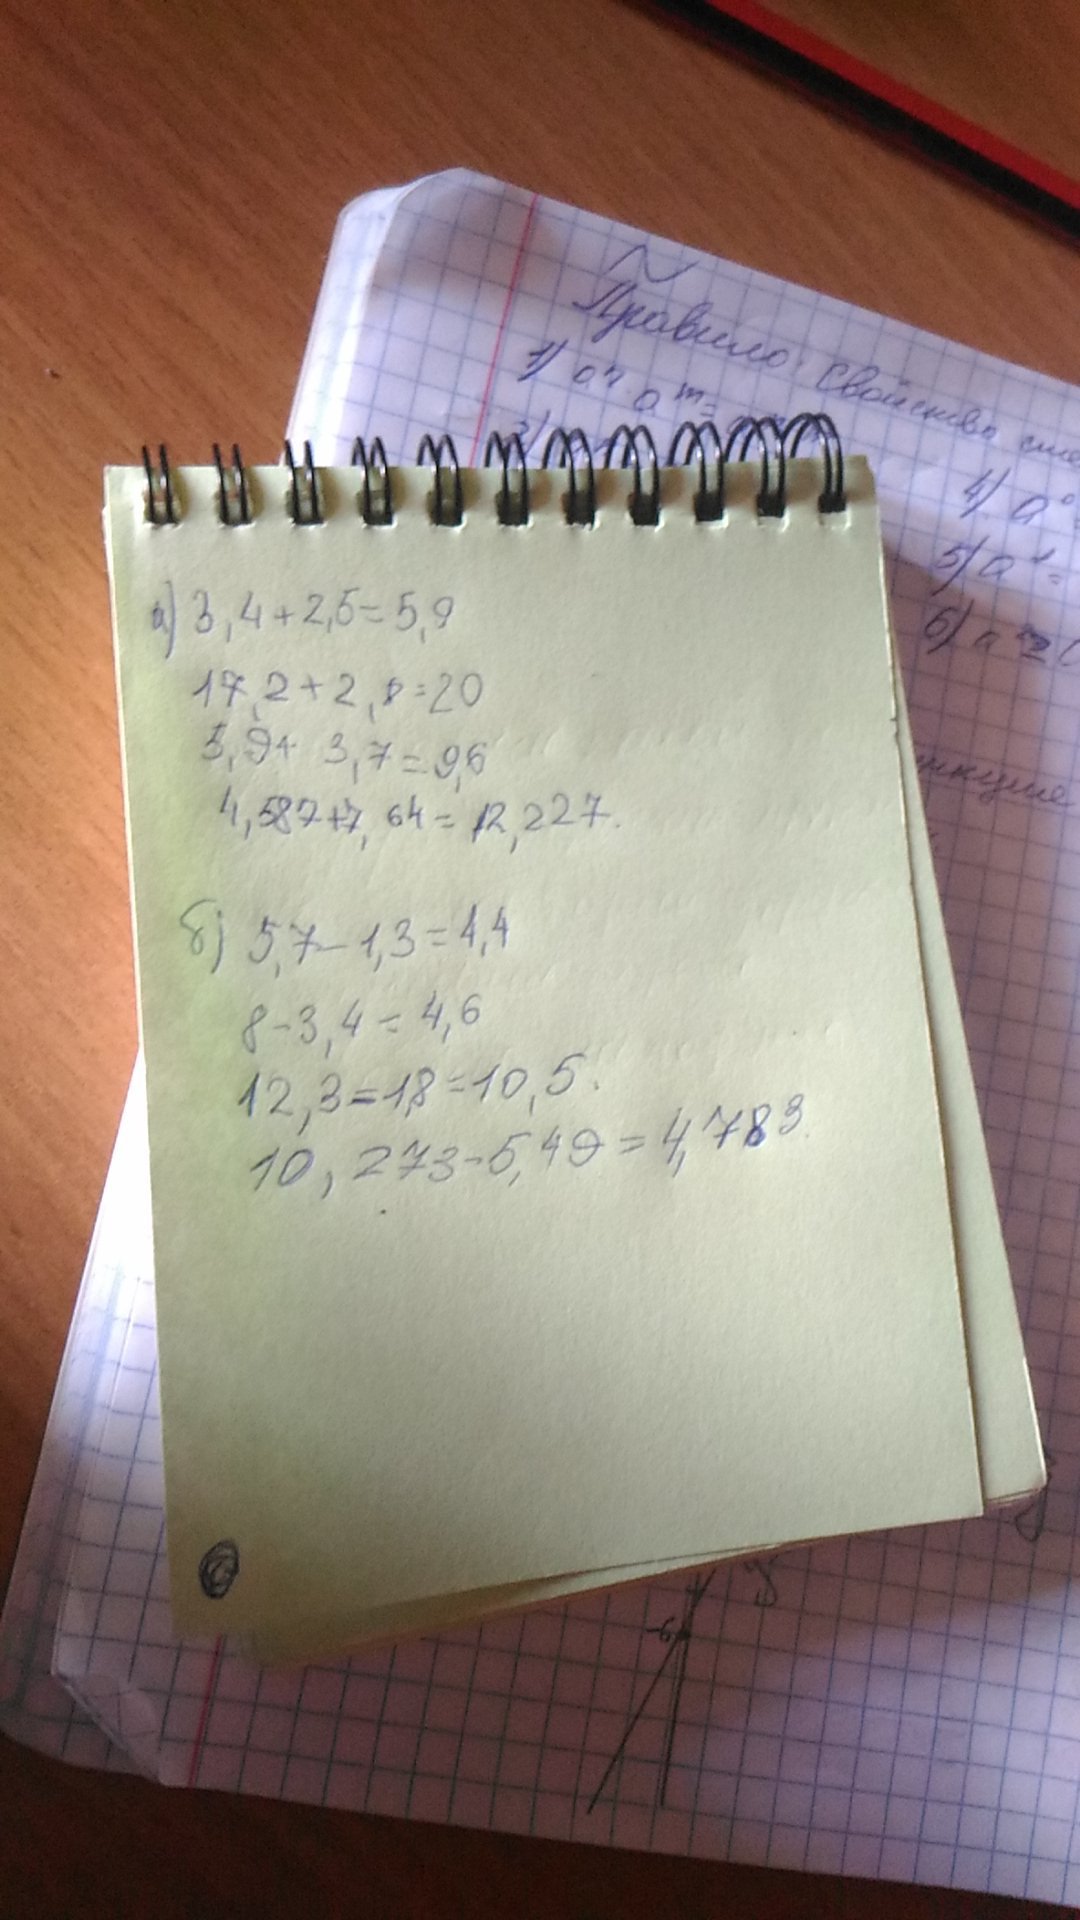 Правило: Свойства
1) aⁿ a ᵐ =
4) a⁰
5) a¹ =
6) a
а) 3,4+2,5=5,9
17,2+2,8=20
5,9+ 3,7=9,6
4,587+7,64=12,227.
б) 5,7-1,3=4,4
8-3,4=4,6
12,3=1,8=10,5.
10,273-5,49=4,783.
-6
y